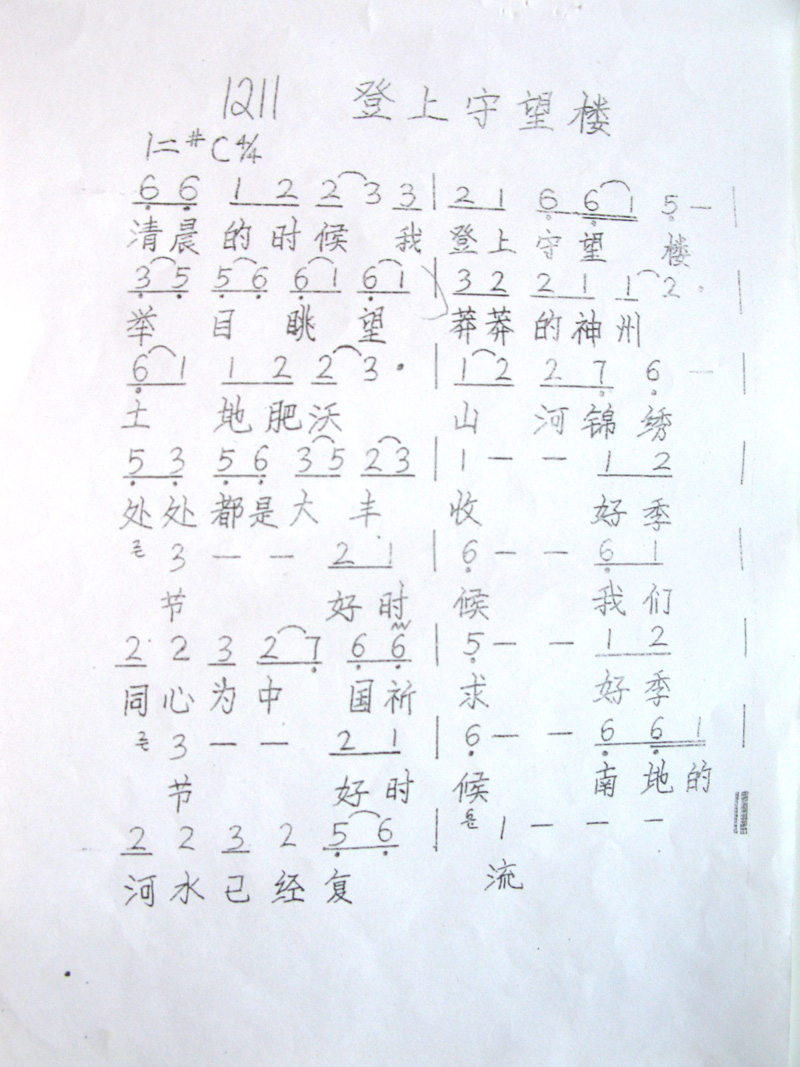 1211 登上守望楼
1=#C 4/4
6 6 1 2 2 3 3 | 2 1 6 6 1 5 — |
清晨的时候 我 登上守望 楼
3 5 5 6 6 1 6 1 | 3 2 2 1 1 2 . |
举 目 眺 望 莽莽的神州
6 1 1 2 2 3 . | 1 2 2 7 6 — |
土 地肥沃 山 河锦绣
5 3 5 6 3 5 2 3 | 1 — — 1 2 |
处处都是大 丰 收 好季
3 — — 2 1 | 6 — — 6 1 |
节 好时 候 我们
2 2 3 2 7 6 6 | 5 — — 1 2 |
同心为中 国祈 求 好季
3 — — 2 1 | 6 — — 6 6 1 |
节 好时 候 南地的
2 2 3 2 5 6 | 1 — — —
河水已经复 流